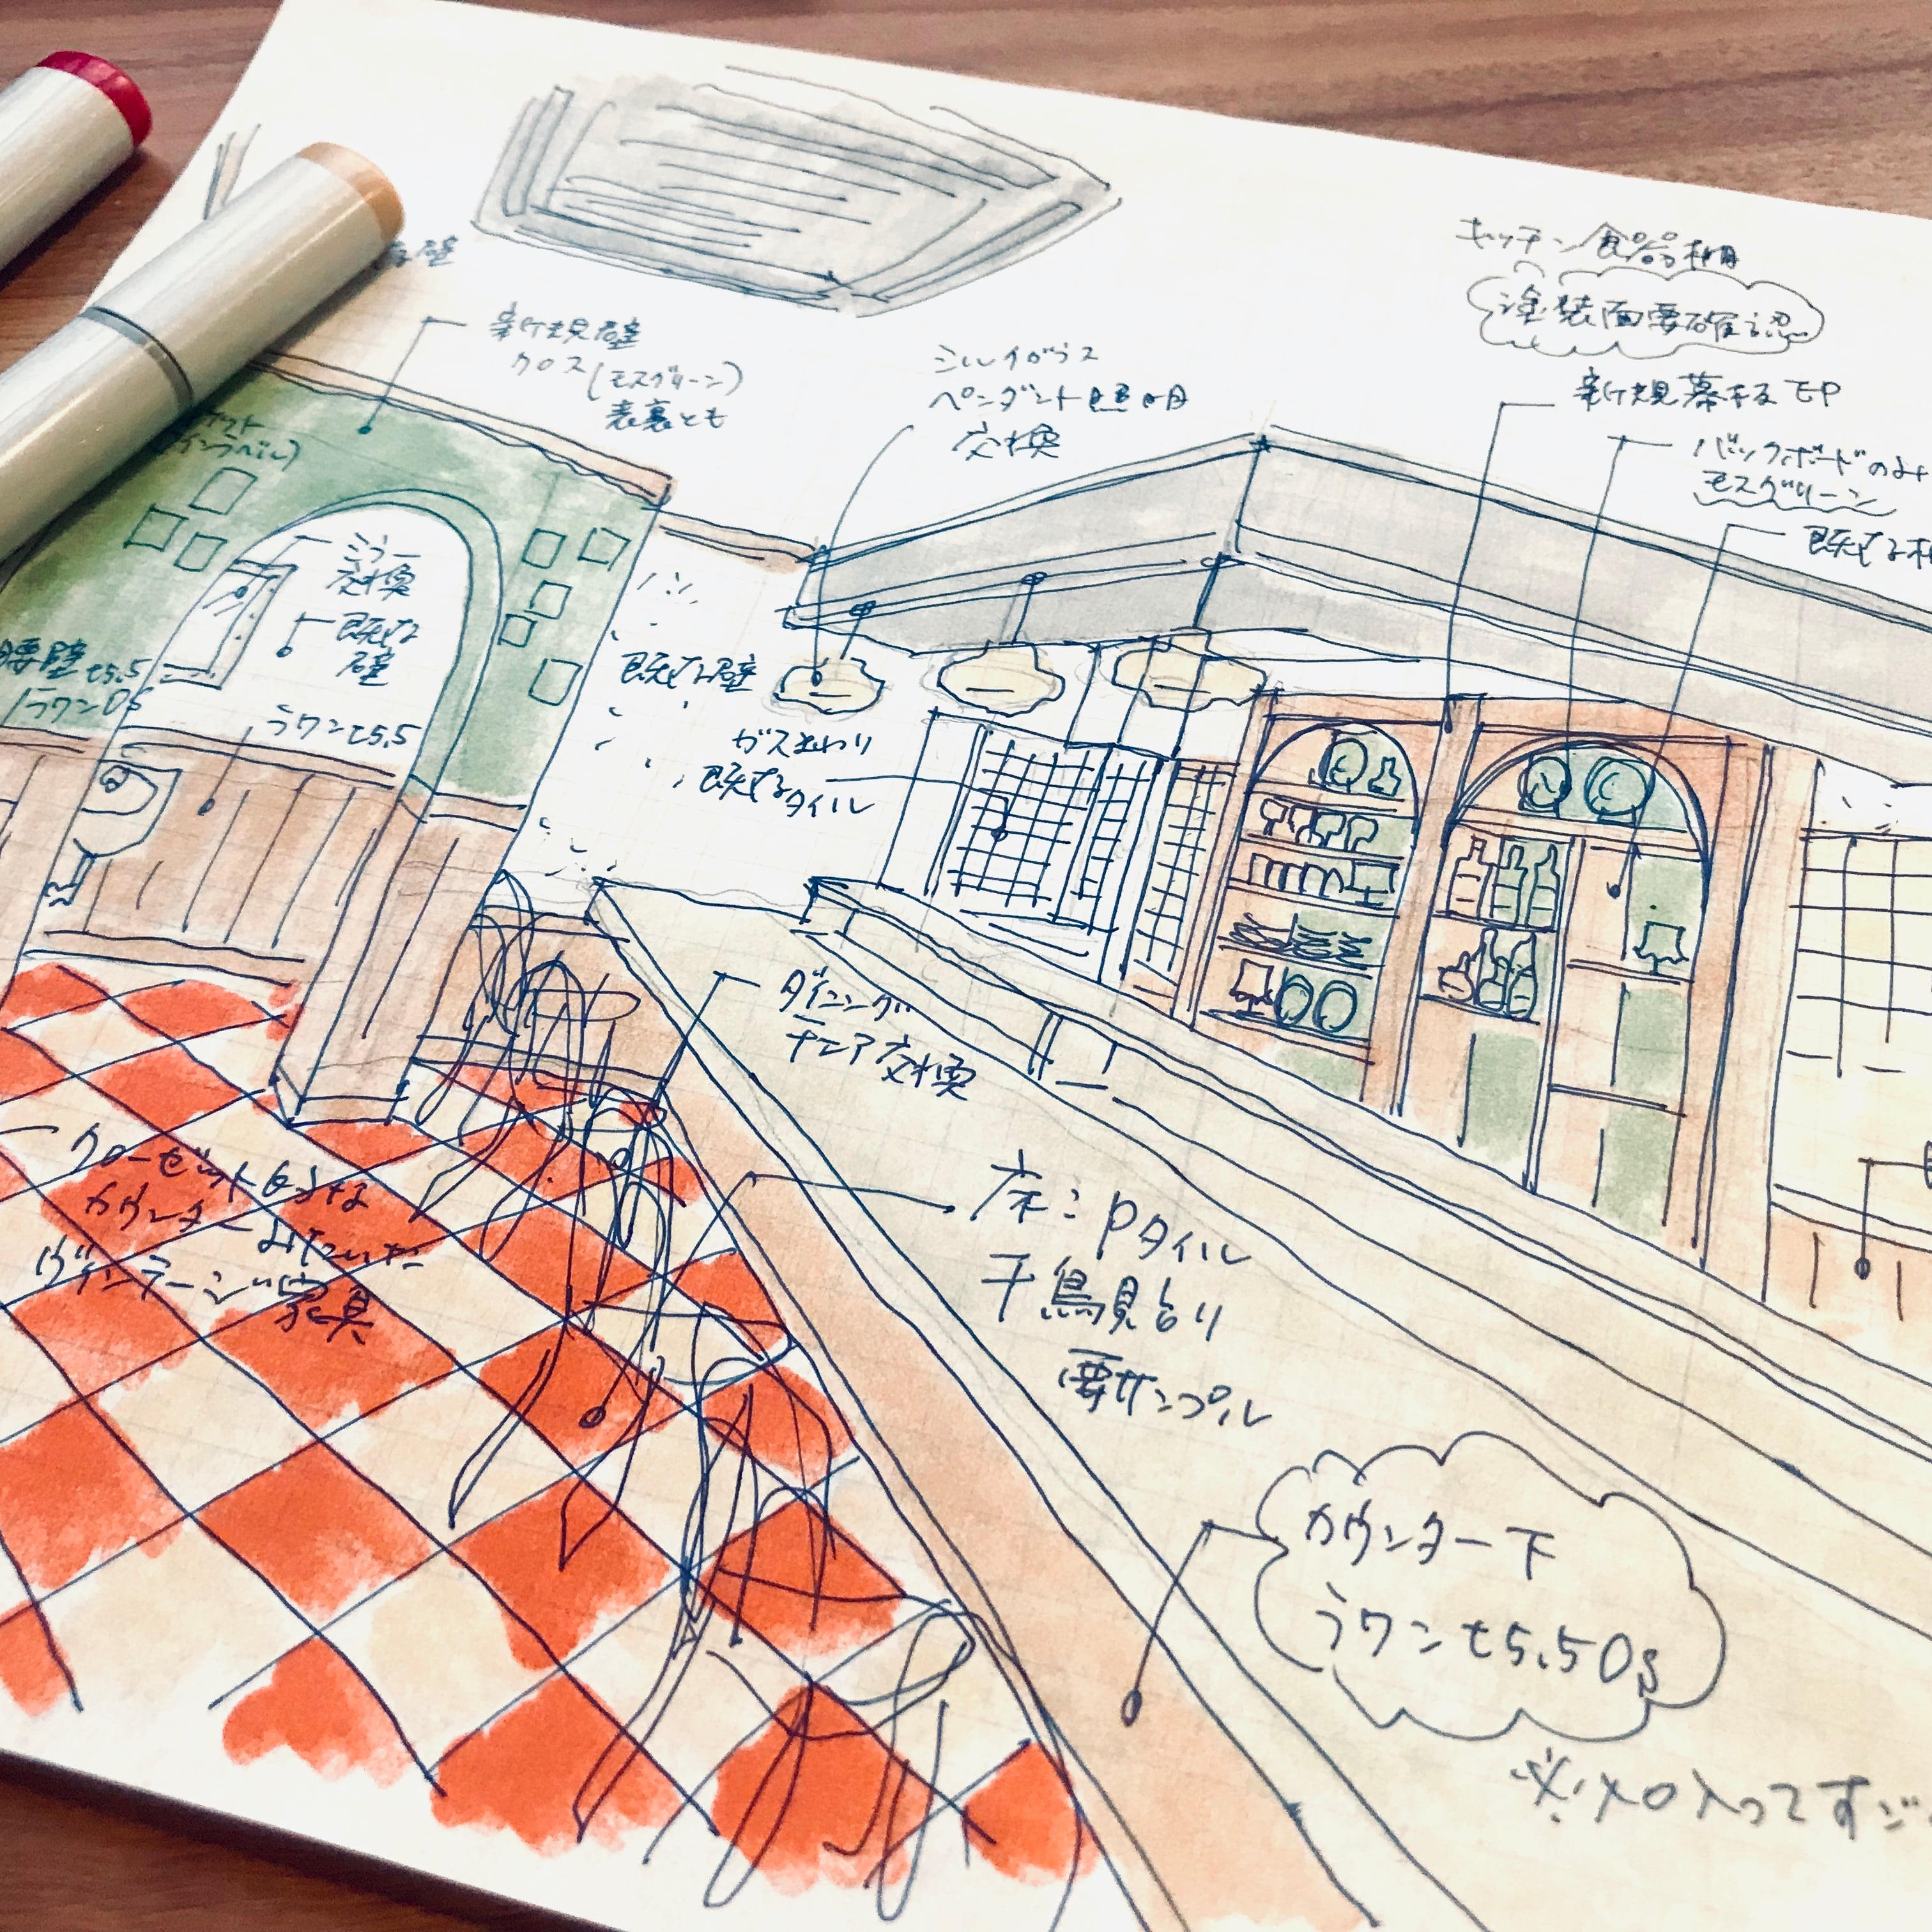 壁
新規壁
クロス(モスグリーン)
表裏とも
ミルクガラス
ペンダント照明
交換
キッチン食器棚
塗装面要確認
新規幕板EP
バックボードのみ
モスグリーン
既存
ミラー
交換
既存
壁
腰壁t5.5
ラワンOS
ラワンt5.5
既存壁
ガスまわり
既存タイル
ダイニング
チェア交換
クローゼット
カウンターみたいな
ヴィンテージ家具
床:Pタイル
千鳥貼り
要サンプル
カウンター下
ラワンt5.5OS
※入口入ってすぐ